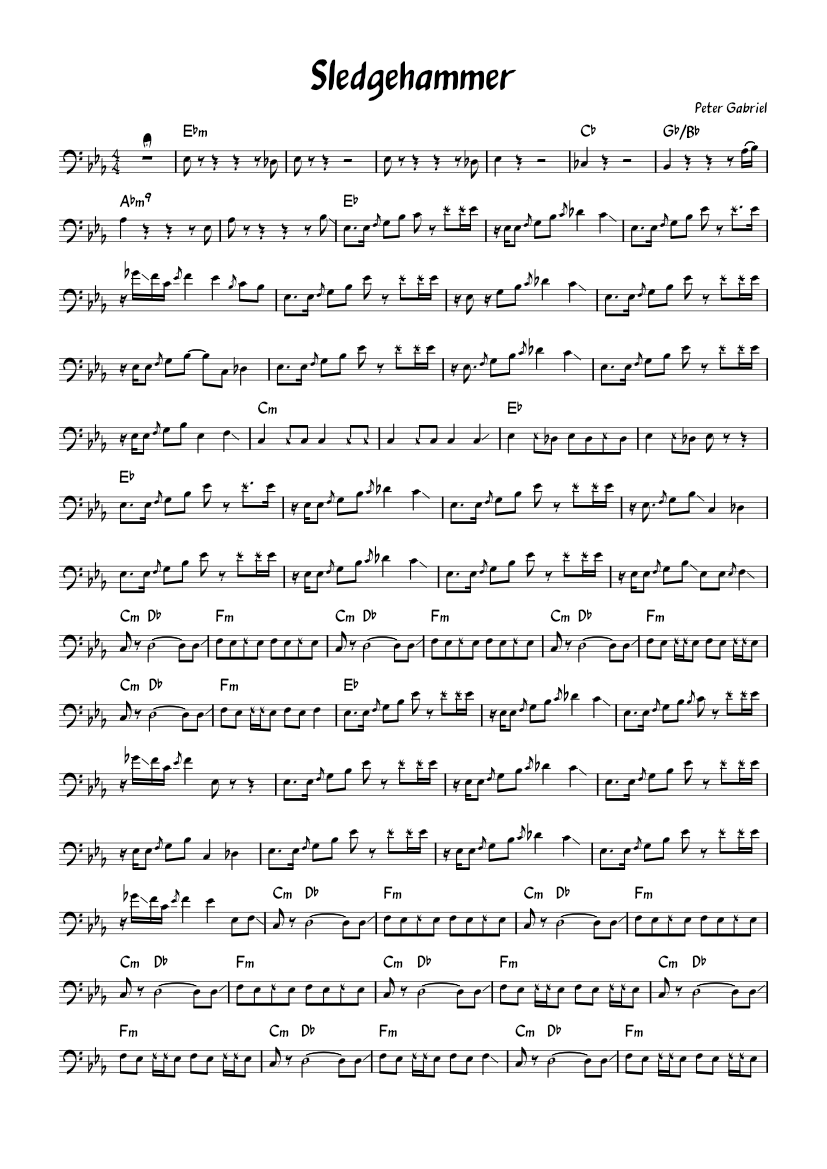 Sledgehammer
Peter Gabriel
E♭m C♭ G♭/B♭
4/4
A♭m9 E♭
Cm E♭
E♭
Cm D♭ Fm Cm D♭ Fm Cm D♭ Fm
Cm D♭ Fm E♭
Cm D♭ Fm Cm D♭ Fm
Cm D♭ Fm Cm D♭ Fm Cm D♭
Fm Cm D♭ Fm Cm D♭ Fm